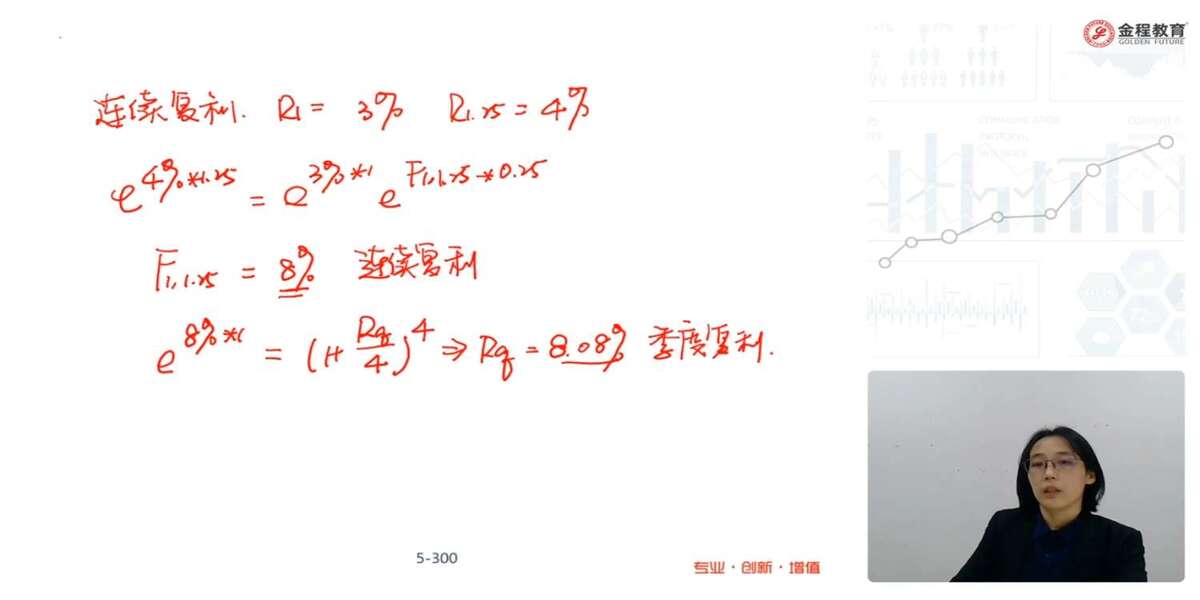 金程教育
GOLDEN FUTURE
连续复利. R₁ = 3% R₁.₂₅ = 4%
e^{4%*1.25} = e^{3%*1} e^{F₁,₁.₂₅*0.25}
F₁,₁.₂₅ = 8% 连续复利
e^{8%*1} = (1+ Rq/4)^4 ⇒ Rq = 8.08% 季度复利.
5-300
专业·创新·增值